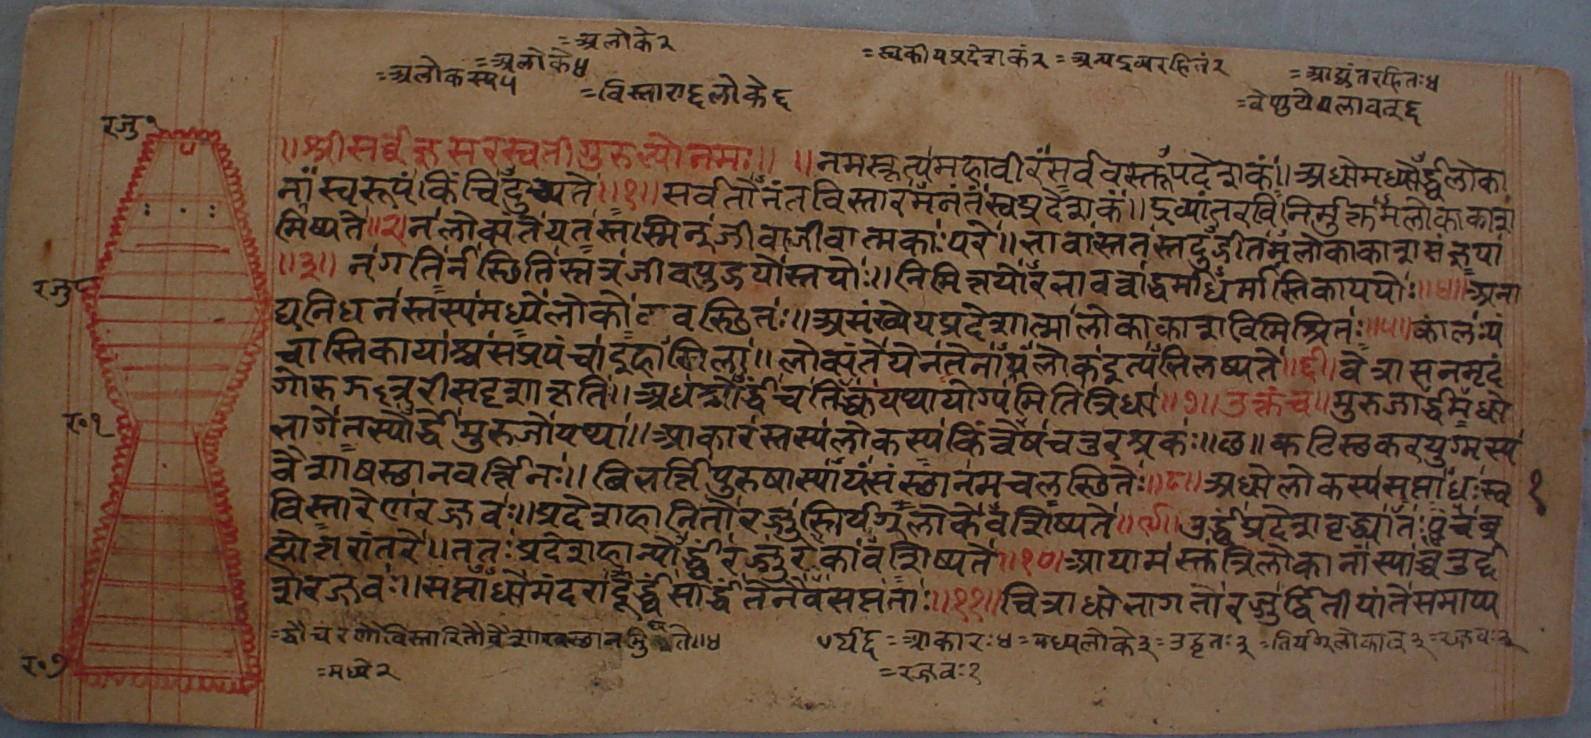 =अलोके२
=अलोके४
=अलोकस्य५
=विस्तारात्६लोके६
=स्वकीयप्रदेशकं२ =अन्यद्रव्यरहितं२
=आद्यंतरहितः४
रजु१
॥श्रीसर्वज्ञसरस्वतीगुरुभ्योनमः॥ ॥नमस्कृत्यमहावीरंसर्ववस्तूपदेशकं॥अधोमध्योर्द्ध्वलोका
नांस्वरूपंकिंचिदुच्यते॥१॥सर्वतोनंतविस्तारमनंतंस्वप्रदेशकं॥द्रव्यांतरविनिर्मुक्तमलोकाकाश
मिष्यते॥२॥नलोक्यंतेयतस्तस्मिन्जीवाजीवात्मकाःपरे॥भावास्ततस्तदुद्गीतमलोकाकाशसंज्ञया
॥३॥नगतिर्नस्थितिस्तत्रजीवपुद्गलयोस्तयोः॥निमित्तयोरभावत्वाद्धर्माधर्मास्तिकाययोः॥४॥अना
रजु५
द्यनिधनस्तस्यमध्येलोकोऽवस्थितः॥असंख्येयप्रदेशात्मालोकाकाशविमिश्रितः॥५॥कालःपं
चास्तिकायाश्चसप्रपंचाइहाखिला॥लोक्यंतेयेनतेनायंलोकइत्यभिलप्यते॥६॥वेत्रासनमृदं
गोरुझल्लरीसदृशाकृति॥अधश्चोर्द्ध्वंचतिर्यक्चयथायोग्यमितित्रिधा॥७॥उक्तंच॥मुरुजार्द्धमधो
र॰१
भागेतस्योर्द्ध्वेमुरुजोयथा॥आकारस्तस्यलोकस्यकिंत्वेषचतुरश्रकः॥छ॥कटिस्थकरयुग्मस्य
वैशाषस्थानवर्त्तिनः॥बिभर्त्तिपुरुषास्यायंसंस्थानमचलस्थितेः॥८॥अधोलोकस्यसप्ताधःस्व
१
विस्तारेणरज्जवः॥प्रदेशहानितोरज्जुस्तिर्यग्लोकेवशिष्यते॥९॥उर्द्ध्वंप्रदेशवृद्ध्यातःपंचब्र
ह्मोत्तरांतरे॥ततःप्रदेशहान्योर्द्ध्वंरज्जुरेकावशिष्यते॥१०॥आयामस्तुत्रिलोकानांस्याच्चतुर्द्द
शरज्जवः॥सप्ताधोमंदरादूर्द्ध्वंसार्द्धंतेनैवसप्तताः॥११॥चित्राधोभागतोरज्जुर्द्वितीयांतेसमाप्य
र॰७
=मध्ये२
=आकारः४=मध्यलोके३=उद्धृतः३=तिर्यग्लोकात्३=रज्जवः२
=रज्जवः१